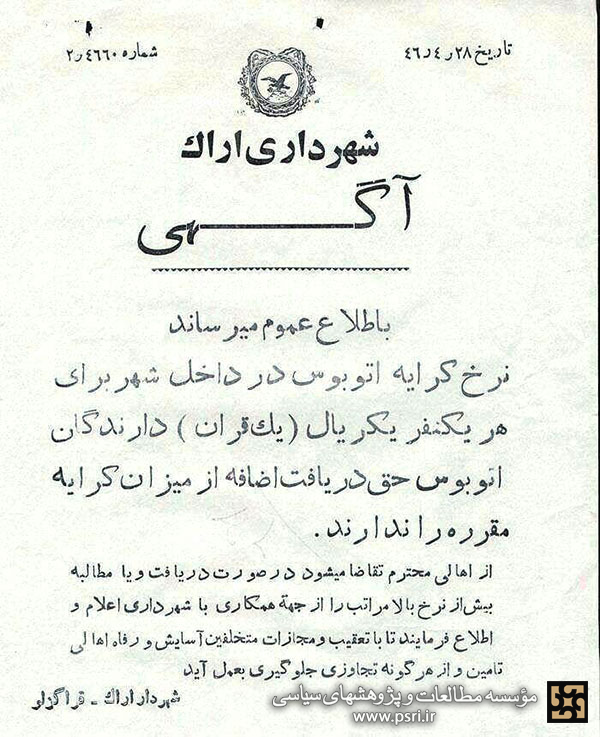 تاریخ ۲۸ر۴ر۴۶
شماره ۴۶۶۰ر۲
شهرداری اراك
آگهی
باطلاع عموم میرساند
نرخ کرایه اتوبوس در داخل شهر برای
هر یکنفر یکریال (یك قران) دارندگان
اتوبوس حق دریافت اضافه از میزان کرایه
مقرره را ندارند.
از اهالی محترم تقاضا میشود در صورت دریافت و یا مطالبه
بیش از نرخ بالا مراتب را از جهة همکاری با شهرداری اعلام و
اطلاع فرمایند تا با تعقیب و مجازات متخلفین آسایش و رفاه اهالی
تامین و از هر گونه تجاوزی جلوگیری بعمل آید
شهردار اراك - قراگزلو
مؤسسه مطالعات و پژوهشهای سیاسی
www.psri.ir